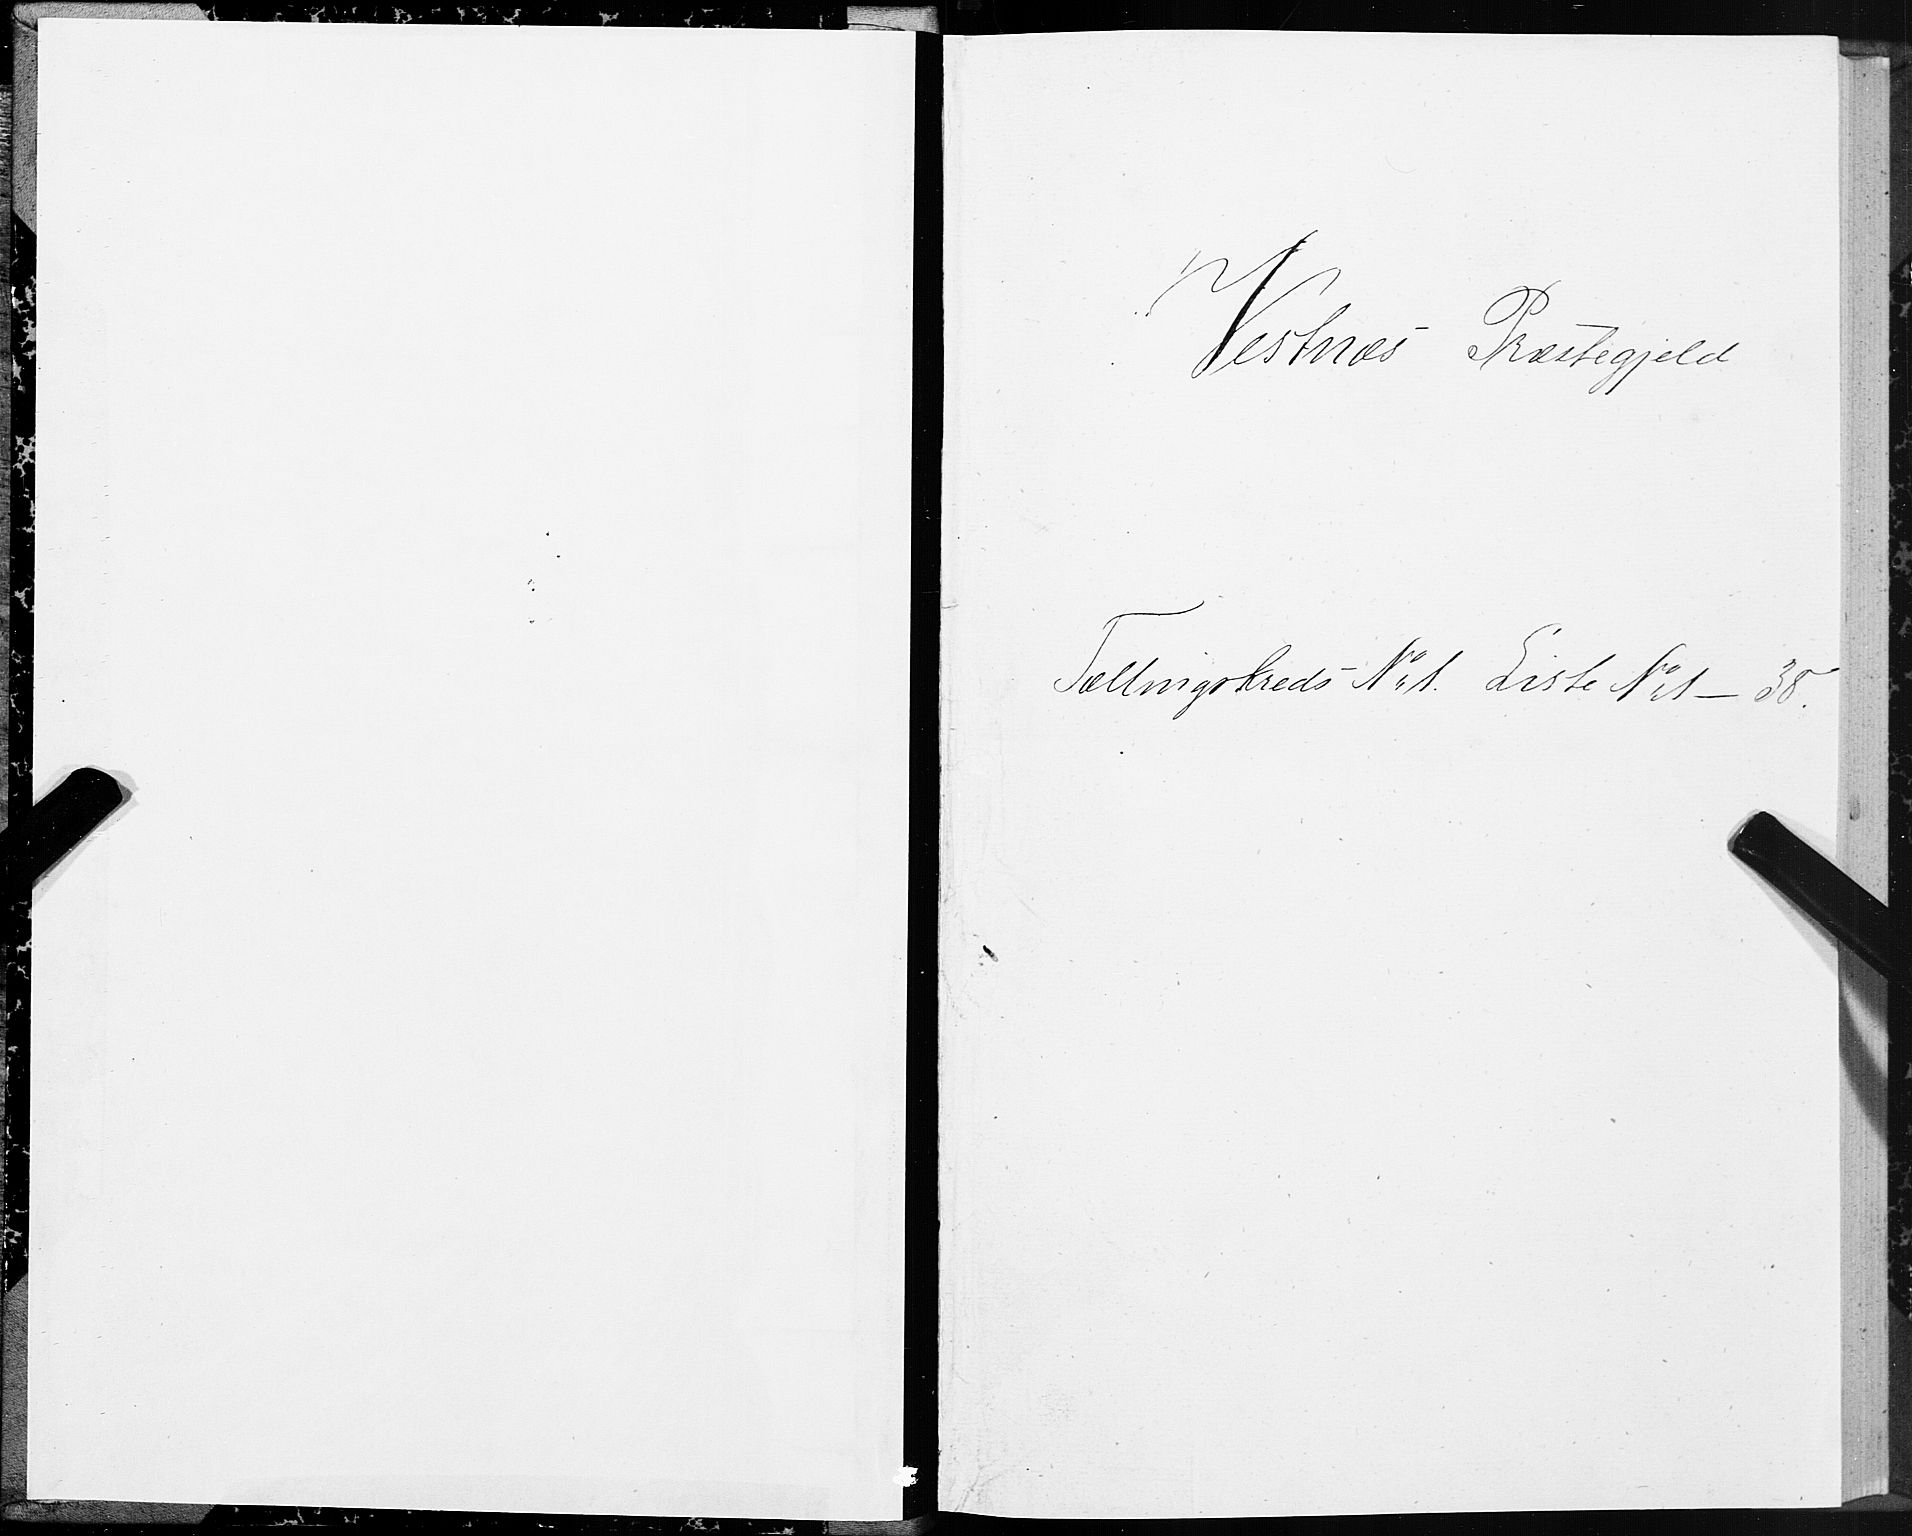 Vestnæs Præstegjeld
Tællingskreds No 1. Liste No 1 — 38.